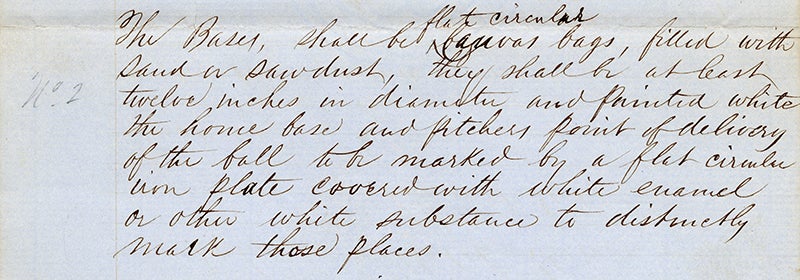 flat circular
The Bases, shall be canvas bags, filled with
sand or sawdust, they shall be at least
No. 2
twelve inches in diameter and painted white
the home base and pitchers point of delivery
of the ball to be marked by a flat circular
iron plate covered with white enamel
or other white substance to distinctly
mark those places.